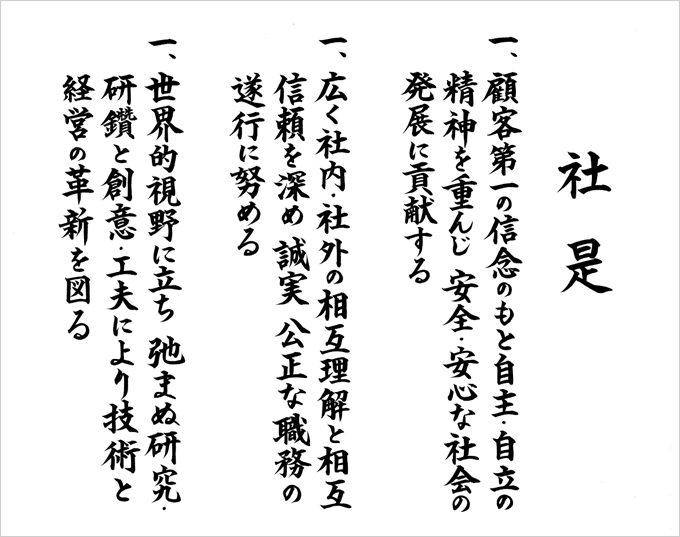 社是
一、顧客第一の信念のもと自主・自立の
精神を重んじ 安全・安心な社会の
発展に貢献する
一、広く社内・社外の相互理解と相互
信頼を深め 誠実 公正な職務の
遂行に努める
一、世界的視野に立ち 弛まぬ研究・
研鑽と創意・工夫により技術と
経営の革新を図る